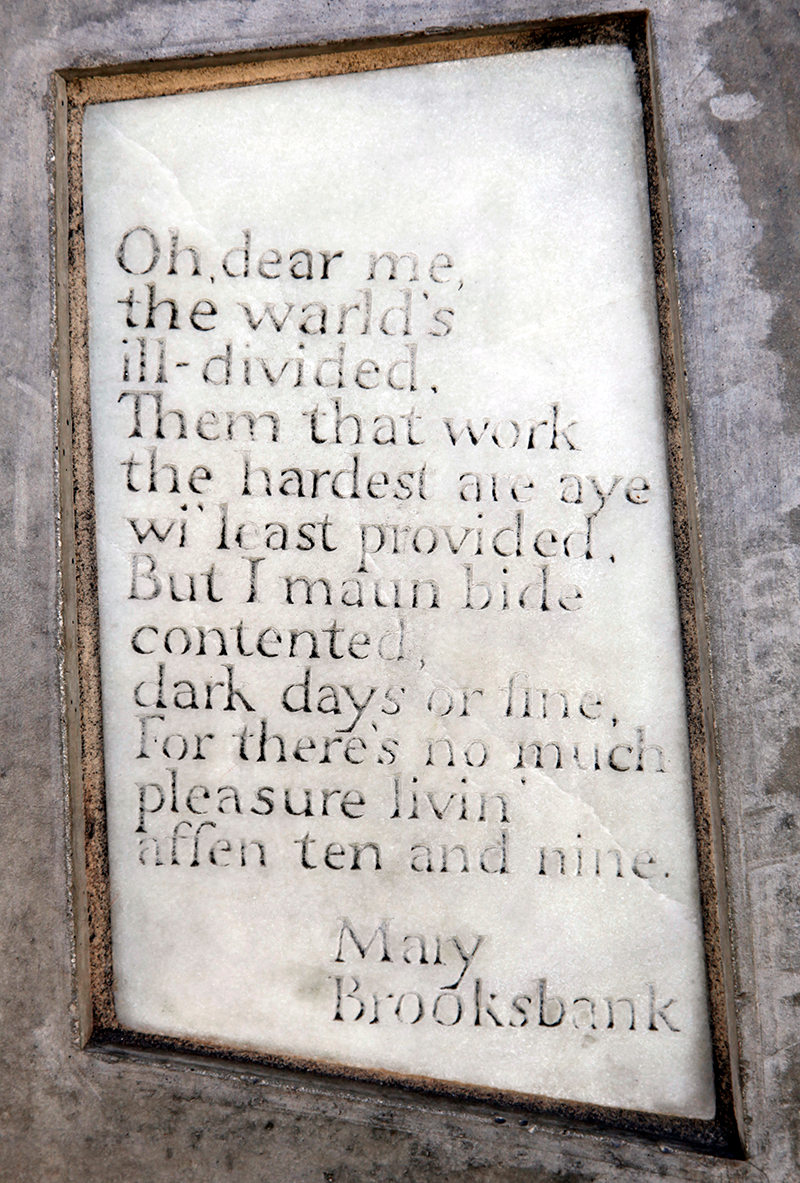 Oh, dear me,
the warld's
ill-divided.
Them that work
the hardest are aye
wi' least provided.
But I maun bide
contented,
dark days or fine,
For there's no much
pleasure livin'
affen ten and nine.
Mary
Brooksbank